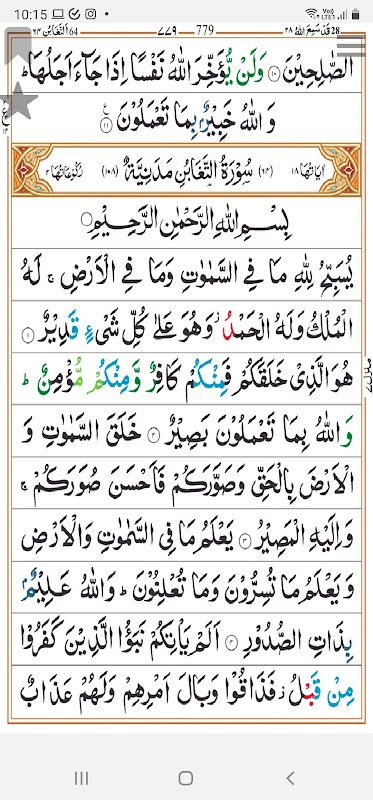 10:15 Vo)) LTE1
٦٤ اَلتَّغَابُن 64 ٧٧٩ 779 ٢٨ قَدْ سَمِعَ اللّٰهُ 28
الصّٰلِحِیْنَ ۝۱۰ وَلَنْ یُّؤَخِّرَ اللّٰهُ نَفْسًا اِذَا جَآءَ اَجَلُهَاؕ
وَ اللّٰهُ خَبِیْرٌۢ بِمَا تَعْمَلُوْنَ ۝۱۱
اٰیَاتُهَا ۱۸ (٦٤) سُوْرَةُ التَّغَابُنِ مَدَنِیَّةٌ (۱۰۸) رُكُوْعَاتُهَا ۲
بِسْمِ اللّٰهِ الرَّحْمٰنِ الرَّحِیْمِ
یُسَبِّحُ لِلّٰهِ مَا فِی السَّمٰوٰتِ وَمَا فِی الْاَرْضِ ۚ لَهُ
الْمُلْكُ وَلَهُ الْحَمْدُ ؗ وَهُوَ عَلٰی كُلِّ شَیْءٍ قَدِیْرٌ ۝۱
هُوَ الَّذِیْ خَلَقَكُمْ فَمِنْكُمْ كَافِرٌ وَّمِنْكُمْ مُّؤْمِنٌ ؕ
وَ اللّٰهُ بِمَا تَعْمَلُوْنَ بَصِیْرٌ ۝۲ خَلَقَ السَّمٰوٰتِ وَ
الْاَرْضَ بِالْحَقِّ وَصَوَّرَكُمْ فَاَحْسَنَ صُوَرَكُمْ ۚ
وَاِلَیْهِ الْمَصِیْرُ ۝۳ یَعْلَمُ مَا فِی السَّمٰوٰتِ وَالْاَرْضِ
وَ یَعْلَمُ مَا تُسِرُّوْنَ وَمَا تُعْلِنُوْنَ ؕ وَاللّٰهُ عَلِیْمٌۢ
بِذَاتِ الصُّدُوْرِ ۝۴ اَلَمْ یَاْتِكُمْ نَبَؤُا الَّذِیْنَ كَفَرُوْا
مِنْ قَبْلُ ؗ فَذَاقُوْا وَبَالَ اَمْرِهِمْ وَلَهُمْ عَذَابٌ